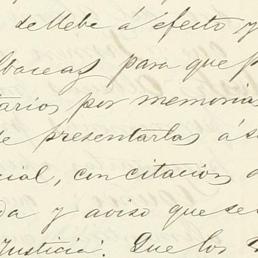 de llebe á efecto y
lbaceas para que p
tarios por memoria
de presentarlas á s
cial, con citacion d
da y aviso que se
Justicia. Que los